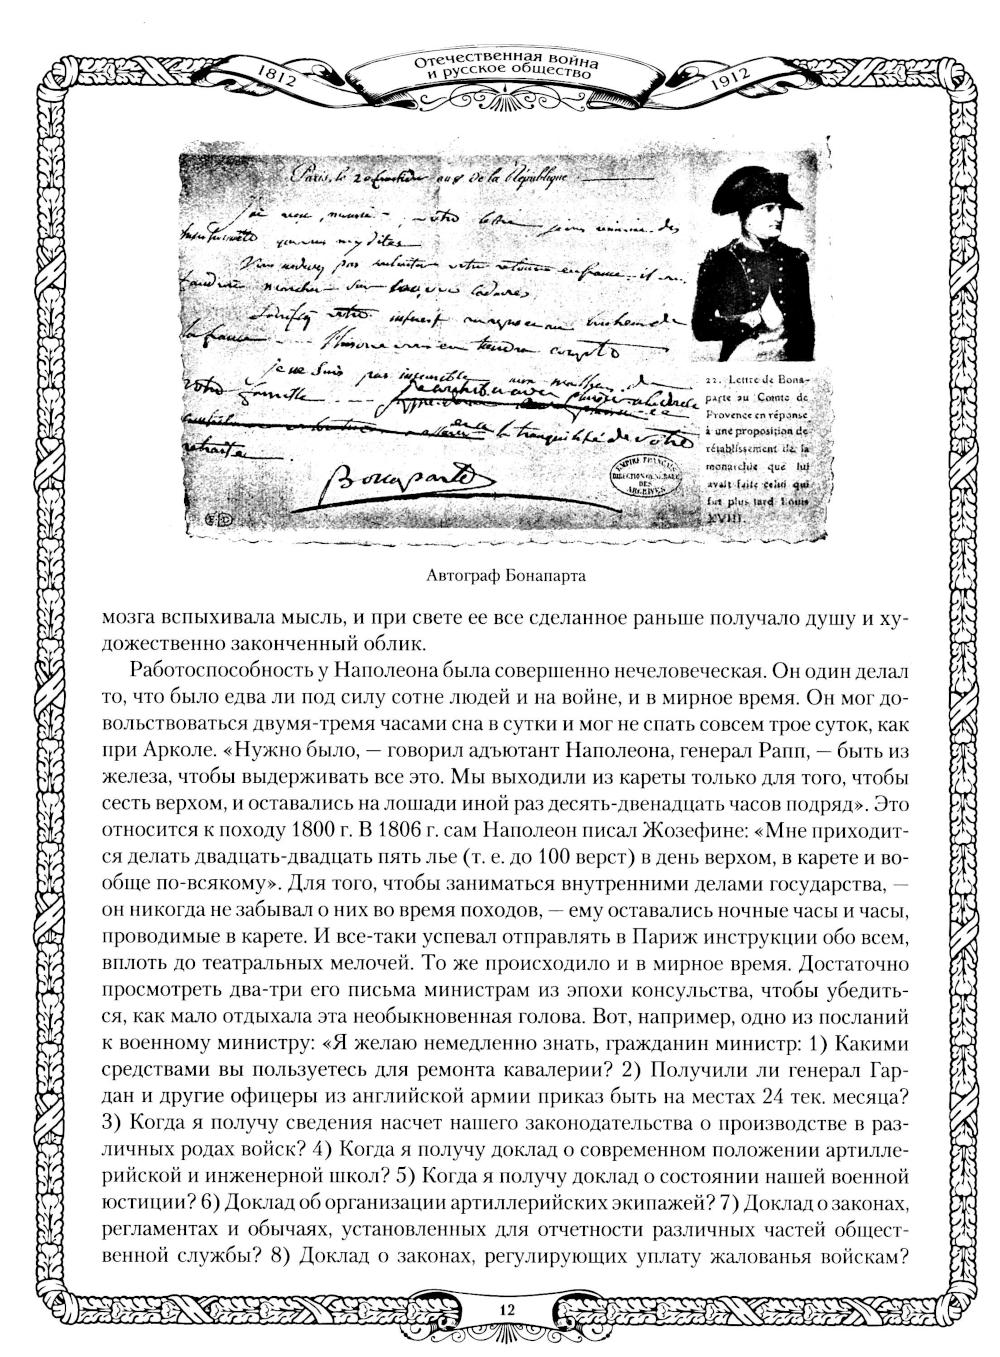 1812
Отечественная война
и русское общество
1912
Paris, le 20 au 8 de la République
votre
des
votre retour en france il
marcher sur cadavres
votre interest au
la france
je ne suis pas
votre famille
de la tranquilité de votre
retraite
Bonaparte
EMPIRE FRANÇAIS
DIRECTION GENERALE
DES
ARCHIVES
22. Lettre de Bona-
parte au Comte de
Provence en réponse
à une proposition de
rétablissement de la
monarchie que lui
avait faite celui qui
fut plus tard Louis
XVIII.
Автограф Бонапарта
мозга вспыхивала мысль, и при свете ее все сделанное раньше получало душу и ху-
дожественно законченный облик.
Работоспособность у Наполеона была совершенно нечеловеческая. Он один делал
то, что было едва ли под силу сотне людей и на войне, и в мирное время. Он мог до-
вольствоваться двумя-тремя часами сна в сутки и мог не спать совсем трое суток, как
при Арколе. «Нужно было, — говорил адъютант Наполеона, генерал Рапп, — быть из
железа, чтобы выдерживать все это. Мы выходили из кареты только для того, чтобы
сесть верхом, и оставались на лошади иной раз десять-двенадцать часов подряд». Это
относится к походу 1800 г. В 1806 г. сам Наполеон писал Жозефине: «Мне приходит-
ся делать двадцать-двадцать пять лье (т. е. до 100 верст) в день верхом, в карете и во-
обще по-всякому». Для того, чтобы заниматься внутренними делами государства, —
он никогда не забывал о них во время походов, — ему оставались ночные часы и часы,
проводимые в карете. И все-таки успевал отправлять в Париж инструкции обо всем,
вплоть до театральных мелочей. То же происходило и в мирное время. Достаточно
просмотреть два-три его письма министрам из эпохи консульства, чтобы убедить-
ся, как мало отдыхала эта необыкновенная голова. Вот, например, одно из посланий
к военному министру: «Я желаю немедленно знать, гражданин министр: 1) Какими
средствами вы пользуетесь для ремонта кавалерии? 2) Получили ли генерал Гар-
дан и другие офицеры из английской армии приказ быть на местах 24 тек. месяца?
3) Когда я получу сведения насчет нашего законодательства о производстве в раз-
личных родах войск? 4) Когда я получу доклад о современном положении артилле-
рийской и инженерной школ? 5) Когда я получу доклад о состоянии нашей военной
юстиции? 6) Доклад об организации артиллерийских экипажей? 7) Доклад о законах,
регламентах и обычаях, установленных для отчетности различных частей общест-
венной службы? 8) Доклад о законах, регулирующих уплату жалованья войскам?
12